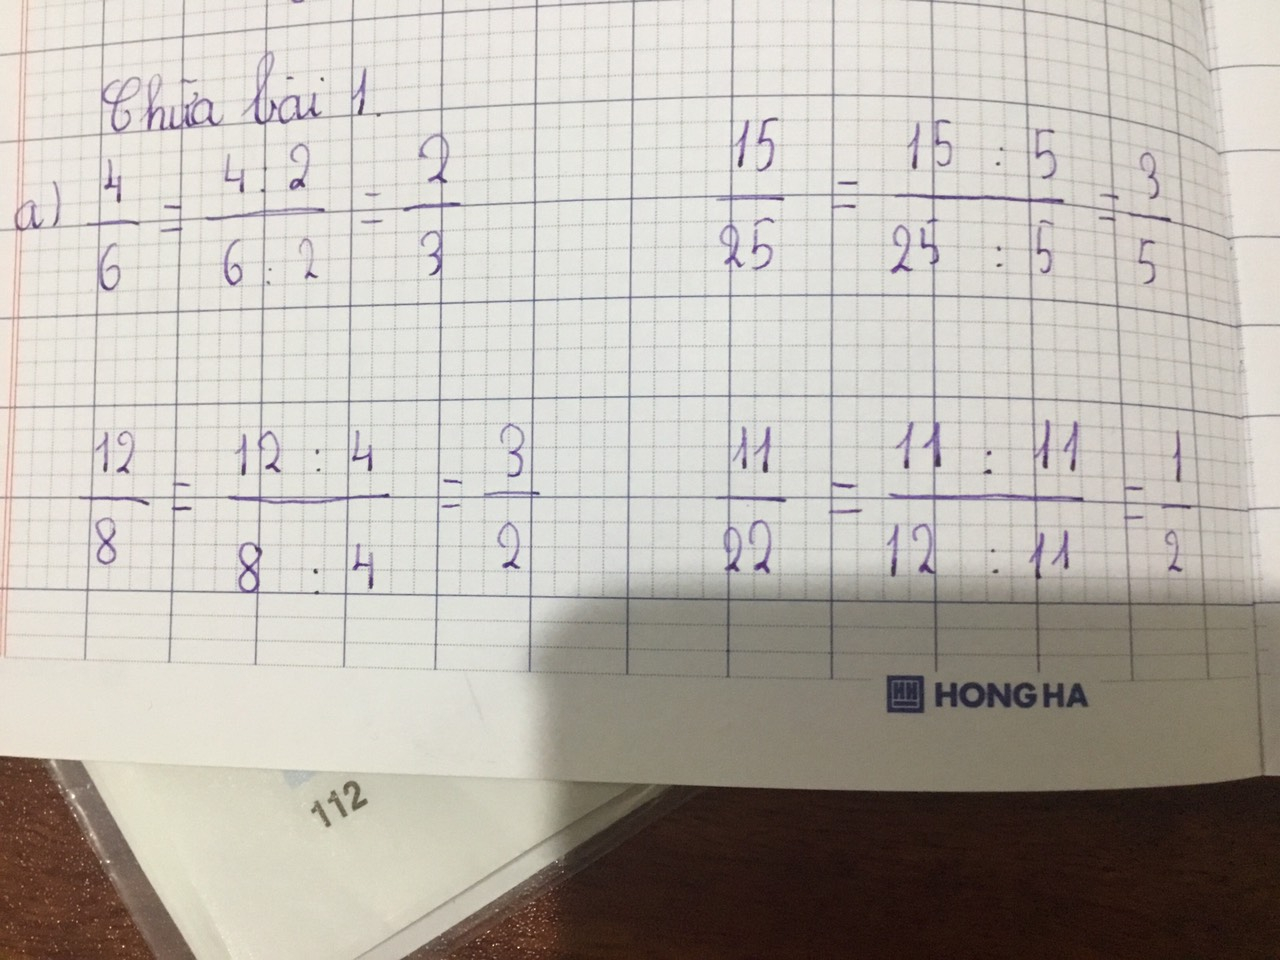 Chữa bài 1.
a) 4/6 = 4 : 2 / 6 : 2 = 2/3
15/25 = 15 : 5 / 25 : 5 = 3/5
12/8 = 12 : 4 / 8 : 4 = 3/2
11/22 = 11 : 11 / 12 : 11 = 1/2
HH HONG HA
112